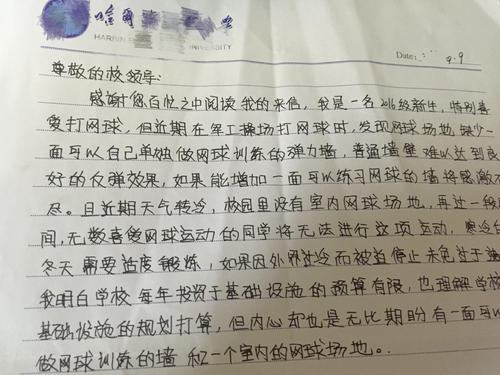 哈尔
HARBIN
UNIVERSITY
Date:
9.9
尊敬的校领导:
感谢您百忙之中阅读我的来信，我是一名2016级新生，特别喜
爱打网球，但近期在军工操场打网球时，发现网球场地缺少一
面可以自己单独做网球训练的弹力墙，普通墙壁难以达到良
好的反弹效果，如果能增加一面可以练习网球的墙将感激不
尽。且近期天气转冷，校园里没有室内网球场地，再过一段
间，无数喜爱网球运动的同学将无法进行这项运动，寒冷
冬天需要适度锻炼，如果因外界过冷而被迫停止未免过于
我明白学校每年投资于基础设施的预算有限，也理解学校
基础设施的规划打算，但内心却也是无比期盼有一面可以
做网球训练的墙和一个室内的网球场地。